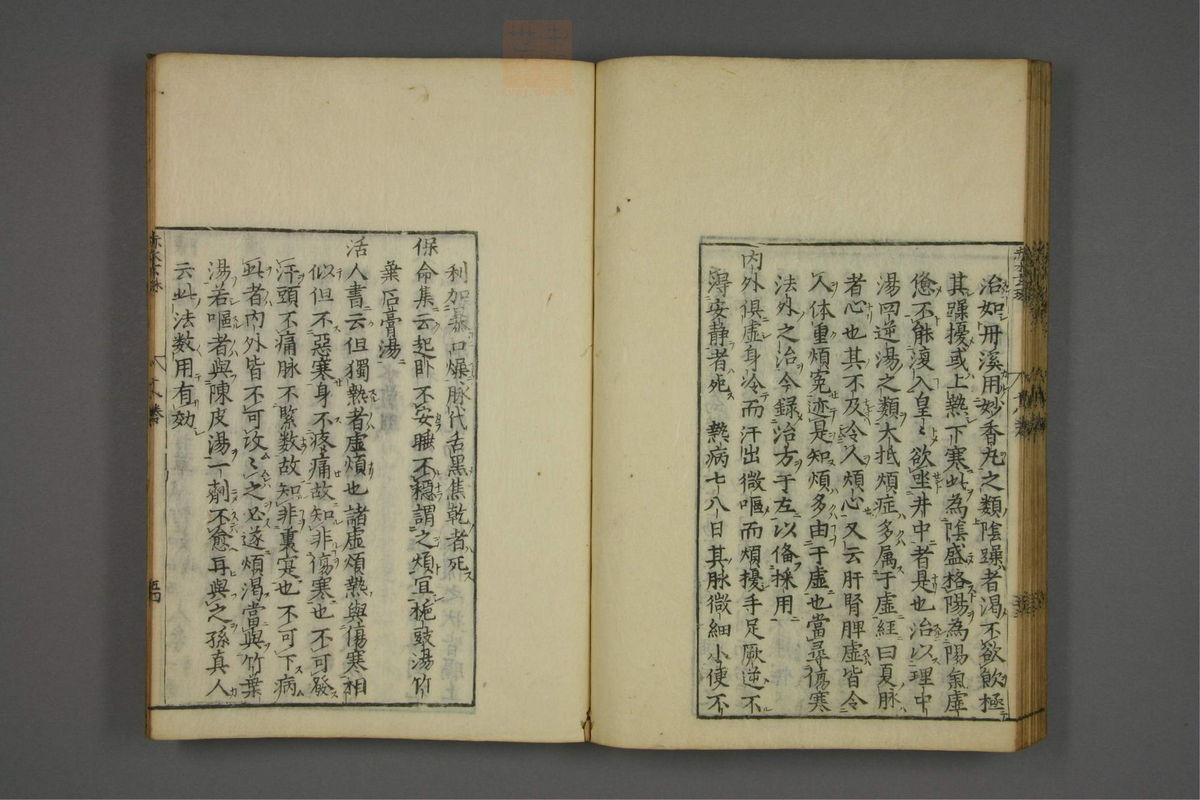 治如丹溪用妙香丸之類陰躁者渴不欲飲極
其躁擾或上熱下寒此為陰盛格陽為陽氣虛
憊不能滾入皇〻欲坐井中者是也治以理中
湯四逆湯之類大抵煩症多属于虛經曰夏脉
者心也其不及令人煩心又云肝腎脾虛皆令
人体重煩冤迹是知煩多由于虛也當尋傷寒
法外之治今録治方于左以俻採用
内外俱虛身冷而汗出微嘔而煩擾手足厥逆不
得安静者死 熱病七八日其脉微細小便不
利加暴口燥脉代舌黑焦乾者死
保命集云起卧不安睡不穩謂之煩宜梔豉湯竹
葉石膏湯
活人書云但獨熱者虛煩也諸虛煩熱與傷寒相
似但不惡寒身不疼痛故知非傷寒也不可發
汗頭不痛脉不緊数故知非裏寔也不可下病
此者内外皆不可攻〻之必遂煩渴當與竹葉
湯若嘔者與陳皮湯一劑不愈再與之孫真人
云此法数用有効